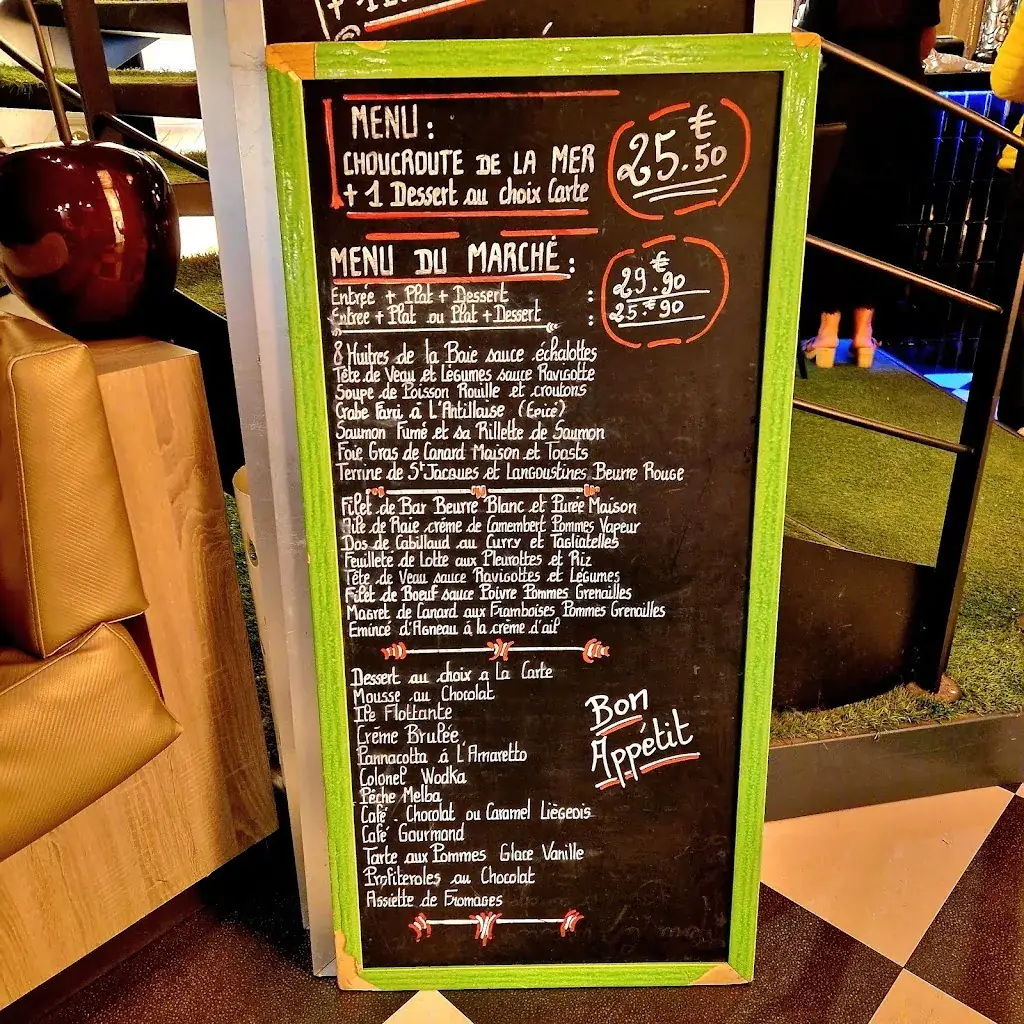 MENU :
CHOUCROUTE DE LA MER
+ 1 Dessert au choix Carte
25.€50
MENU DU MARCHÉ :
Entrée + Plat + Dessert : 29.€90
Entrée + Plat ou Plat + Dessert : 25.€90
8 Huitres de la Baie sauce échalottes
Tête de Veau et Légumes sauce Ravigotte
Soupe de Poisson Rouille et croutons
Crabe Farci à L'Antillaise (Epicé)
Saumon Fumé et sa Rillette de Saumon
Foie Gras de Canard Maison et Toasts
Terrine de St Jacques et Langoustines Beurre Rouge
Filet de Bar Beurre Blanc et Purée Maison
Aile de Raie crème de Camembert Pommes Vapeur
Dos de Cabillaud au Curry et Tagliatelles
Feuilleté de Lotte aux Pleurottes et Riz
Tête de Veau sauce Ravigottes et Légumes
Filet de Boeuf sauce Poivre Pommes Grenailles
Magret de Canard aux Framboises Pommes Grenailles
Emincé d'Agneau à la crème d'ail
Dessert au choix a La Carte
Mousse au Chocolat
Ile Flottante
Crème Brulée
Pannacotta á L'Amaretto
Colonel Wodka
Pêche Melba
Café . Chocolat ou Caramel Liègeois
Café Gourmand
Tarte aux Pommes Glace Vanille
Profiteroles au Chocolat
Assiette de Fromages
Bon
Appétit